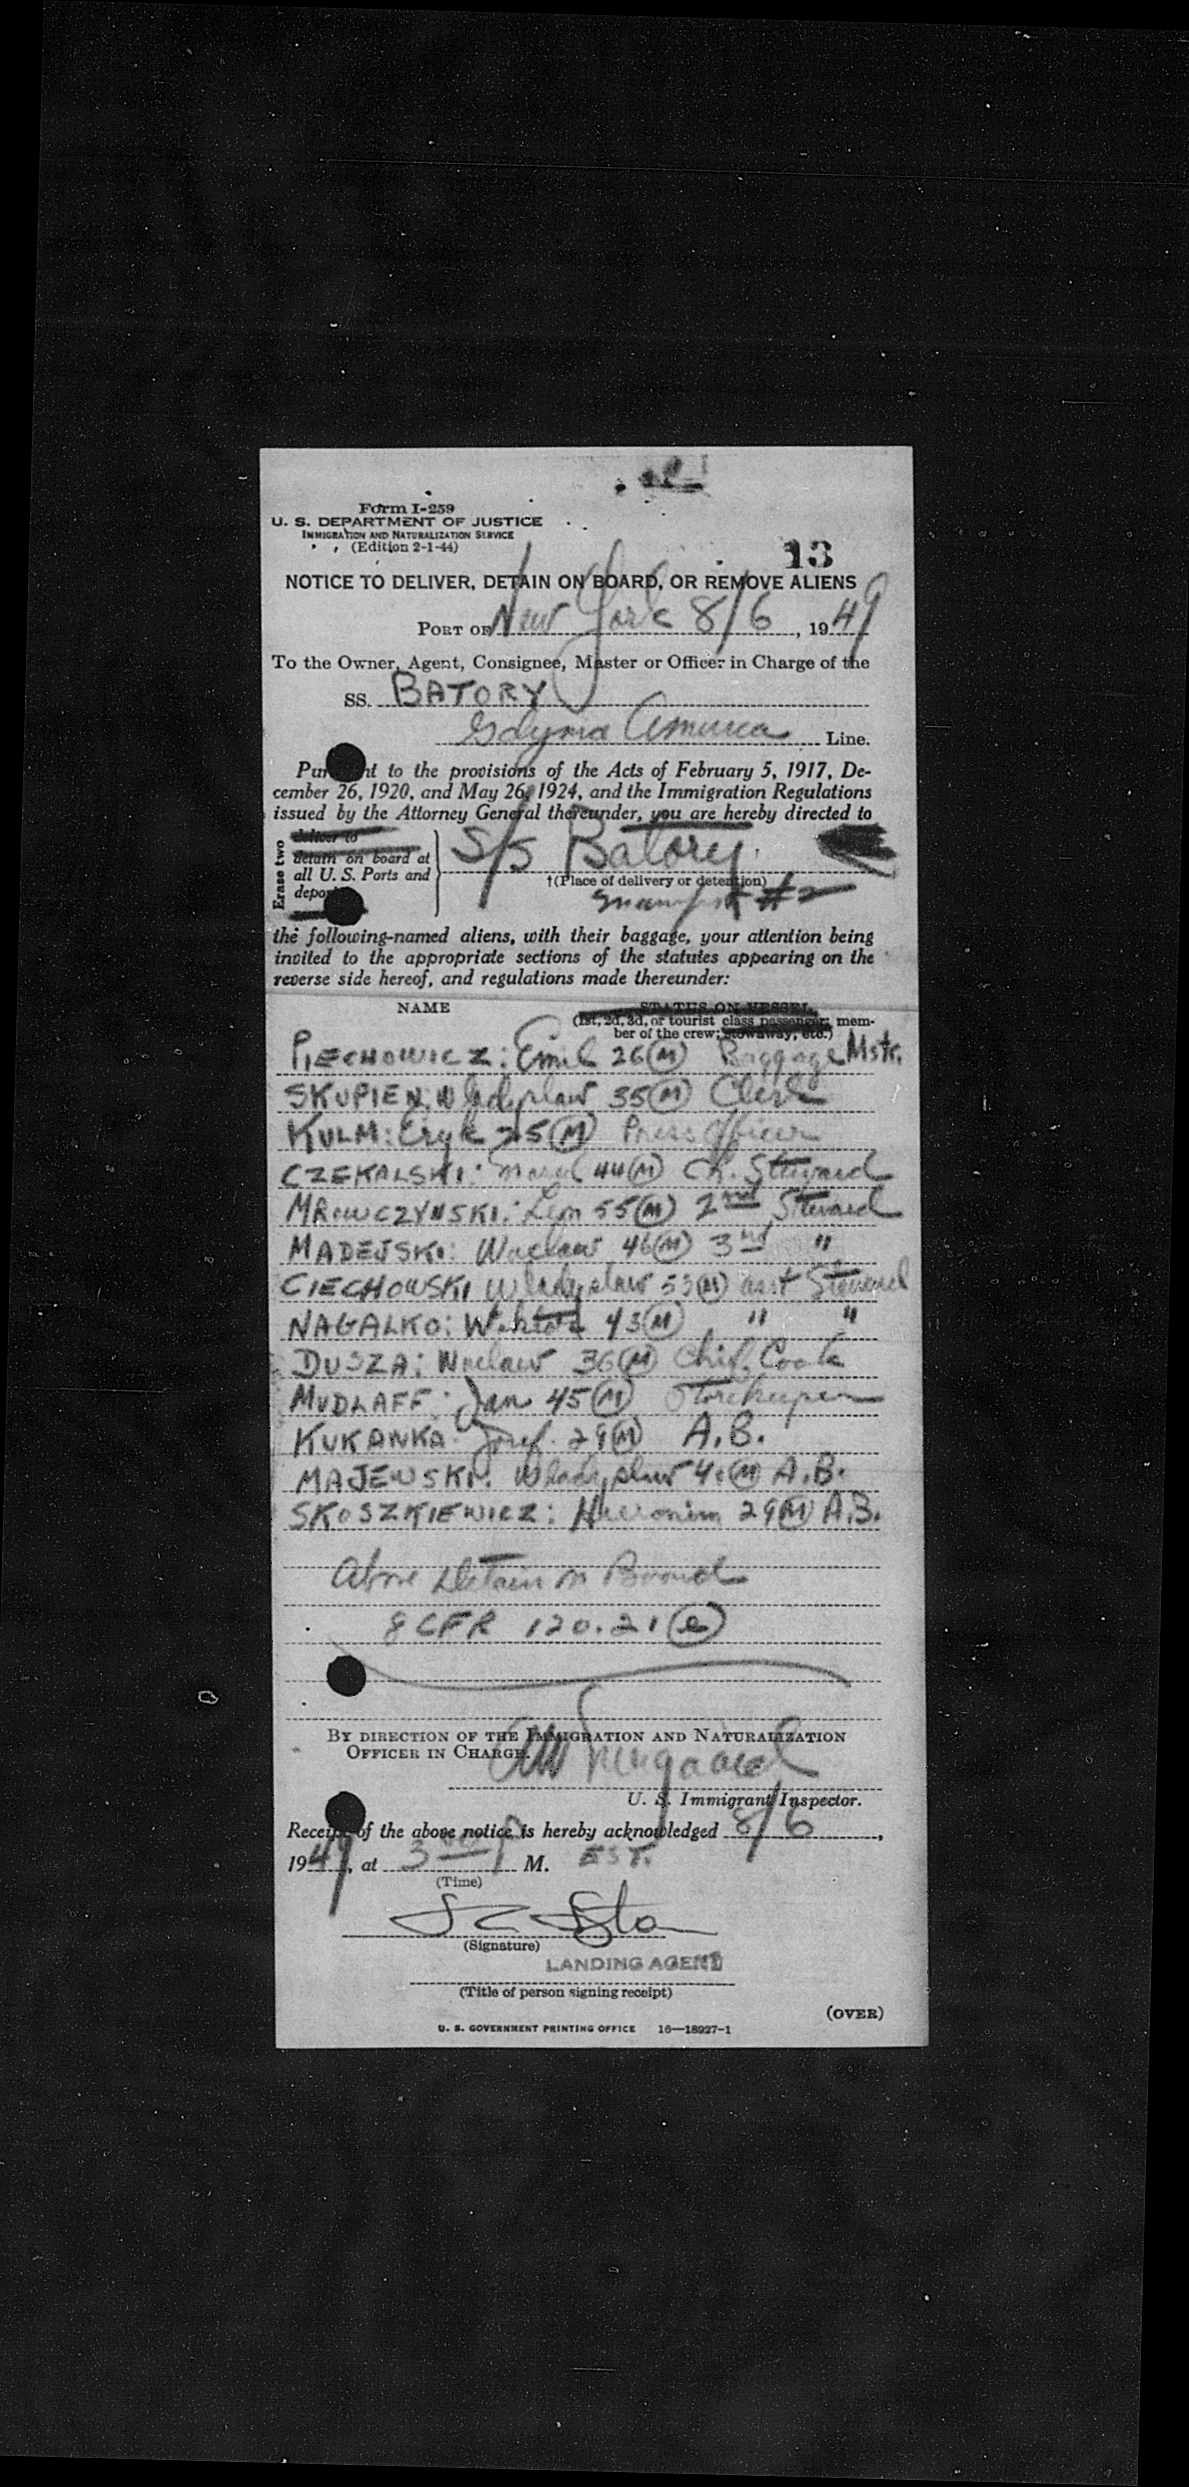 Form I-259
U. S. DEPARTMENT OF JUSTICE
IMMIGRATION AND NATURALIZATION SERVICE
(Edition 2-1-44)
13
NOTICE TO DELIVER, DETAIN ON BOARD, OR REMOVE ALIENS
PORT OF New York 8/6, 1949
To the Owner, Agent, Consignee, Master or Officer in Charge of the
SS. BATORY
Gdynia America Line.
Pursuant to the provisions of the Acts of February 5, 1917, De-
cember 26, 1920, and May 26, 1924, and the Immigration Regulations
issued by the Attorney General thereunder, you are hereby directed to
Erase two
deliver to
detain on board at
all U. S. Ports and
deport
S/S Batory
†(Place of delivery or detention)
Manifest #2
the following-named aliens, with their baggage, your attention being
invited to the appropriate sections of the statutes appearing on the
reverse side hereof, and regulations made thereunder:
NAME STATUS ON VESSEL
(1st, 2d, 3d, or tourist class passenger; mem-
ber of the crew; stowaway, etc.)
PIECHOWICZ: Emil 26 (M) Baggage Mstr.
SKUPIEN: Wladyslaw 35 (M) Clerk
KULM: Eryk 25 (M) Press Officer
CZEKALSKI: 44 (M) Ch. Steward
MROWCZYNSKI: Leon 55 (M) 2nd Steward
MADEJSKI: Waclaw 46 (M) 3rd "
CIECHOWSKI Wladyslaw 53 (M) asst Steward
NAGALKO: 43 (M) " "
DUSZA: Waclaw 36 (M) Chief Cook
MUDLAFF: Jan 45 (M) Storekeeper
KUKANKA: Josef 29 (M) A.B.
MAJEWSKI: Wladyslaw (M) A.B.
SKOSZKIEWICZ: Hieronim 29 (M) A.B.
Above Detain on Board
8 CFR 120.21 (e)
BY DIRECTION OF THE IMMIGRATION AND NATURALIZATION
OFFICER IN CHARGE.
U. S. Immigrant Inspector.
Receipt of the above notice is hereby acknowledged 8/6,
1949, at 3 P M. EST.
(Time)
(Signature)
LANDING AGENT
(Title of person signing receipt)
(OVER)
U. S. GOVERNMENT PRINTING OFFICE 16—18927-1